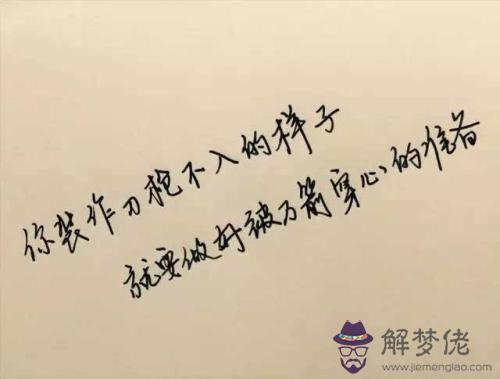 你装作刀枪不入的样子
就要做好被万箭穿心的准备
解梦佬
www.jiemenglao.com